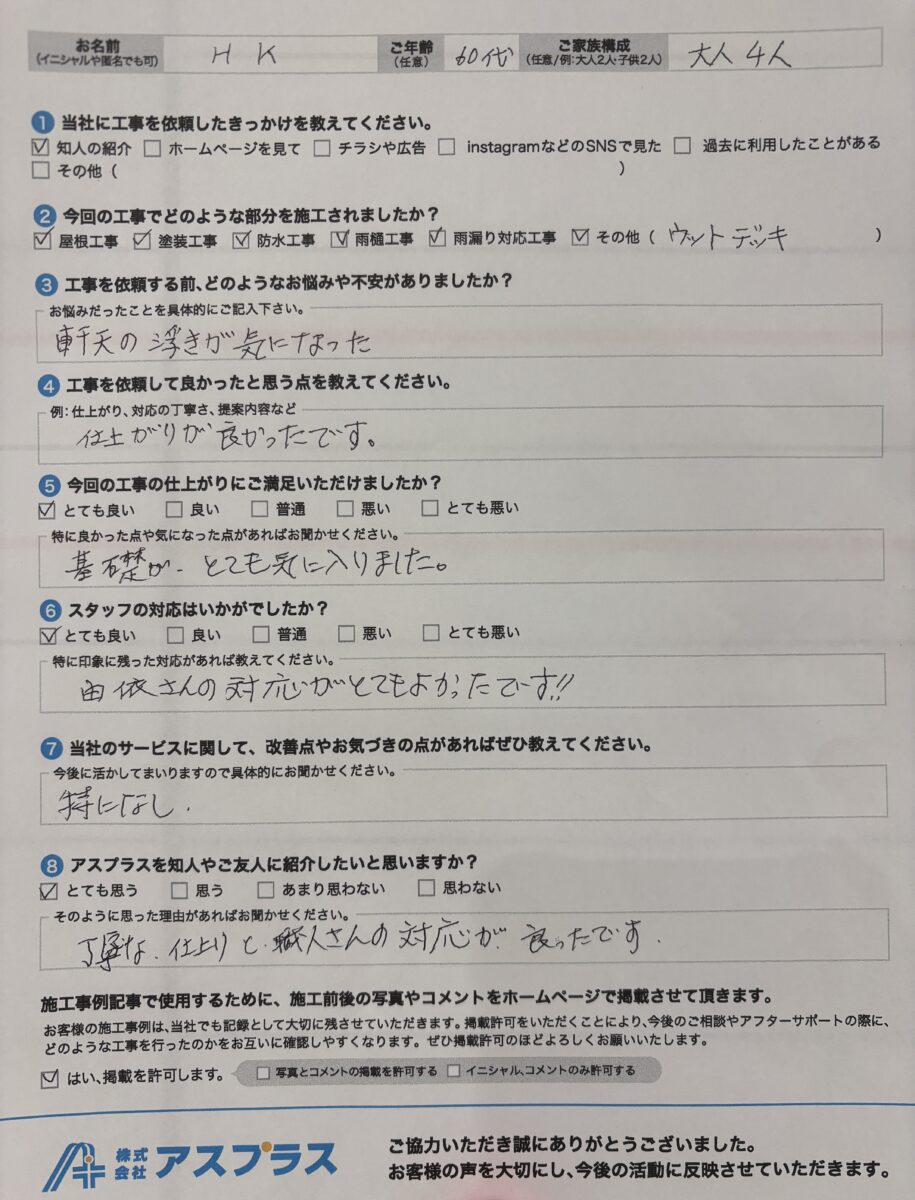 お名前
(イニシャルや匿名でも可)
H K
ご年齢
(任意)
60代
ご家族構成
(任意/例:大人2人・子供2人)
大人 4人
1 当社に工事を依頼したきっかけを教えてください。
☑ 知人の紹介 □ ホームページを見て □ チラシや広告 □ instagramなどのSNSで見た □ 過去に利用したことがある
□ その他 ( )
2 今回の工事でどのような部分を施工されましたか?
☑ 屋根工事 ☑ 塗装工事 ☑ 防水工事 ☑ 雨樋工事 ☑ 雨漏り対応工事 ☑ その他 ( ウットデッキ )
3 工事を依頼する前、どのようなお悩みや不安がありましたか?
お悩みだったことを具体的にご記入下さい。
軒天の浮きが気になった
4 工事を依頼して良かったと思う点を教えてください。
例:仕上がり、対応の丁寧さ、提案内容など
仕上がりが良かったです。
5 今回の工事の仕上がりにご満足いただけましたか?
☑ とても良い □ 良い □ 普通 □ 悪い □ とても悪い
特に良かった点や気になった点があればお聞かせください。
基礎が、とても気に入りました。
6 スタッフの対応はいかがでしたか?
☑ とても良い □ 良い □ 普通 □ 悪い □ とても悪い
特に印象に残った対応があれば教えてください。
由依さんの対応がとてもよかったです!!
7 当社のサービスに関して、改善点やお気づきの点があればぜひ教えてください。
今後に活かしてまいりますので具体的にお聞かせください。
特になし.
8 アスプラスを知人やご友人に紹介したいと思いますか?
☑ とても思う □ 思う □ あまり思わない □ 思わない
そのように思った理由があればお聞かせください。
丁寧な、仕上りと、職人さんの対応が、良ったです.
施工事例記事で使用するために、施工前後の写真やコメントをホームページで掲載させて頂きます。
お客様の施工事例は、当社でも記録として大切に残させていただきます。掲載許可をいただくことにより、今後のご相談やアフターサポートの際に、
どのような工事を行ったのかをお互いに確認しやすくなります。ぜひ掲載許可のほどよろしくお願いいたします。
☑ はい、掲載を許可します。 □ 写真とコメントの掲載を許可する □ イニシャル、コメントのみ許可する
株式会社 アスプラス
ご協力いただき誠にありがとうございました。
お客様の声を大切にし、今後の活動に反映させていただきます。